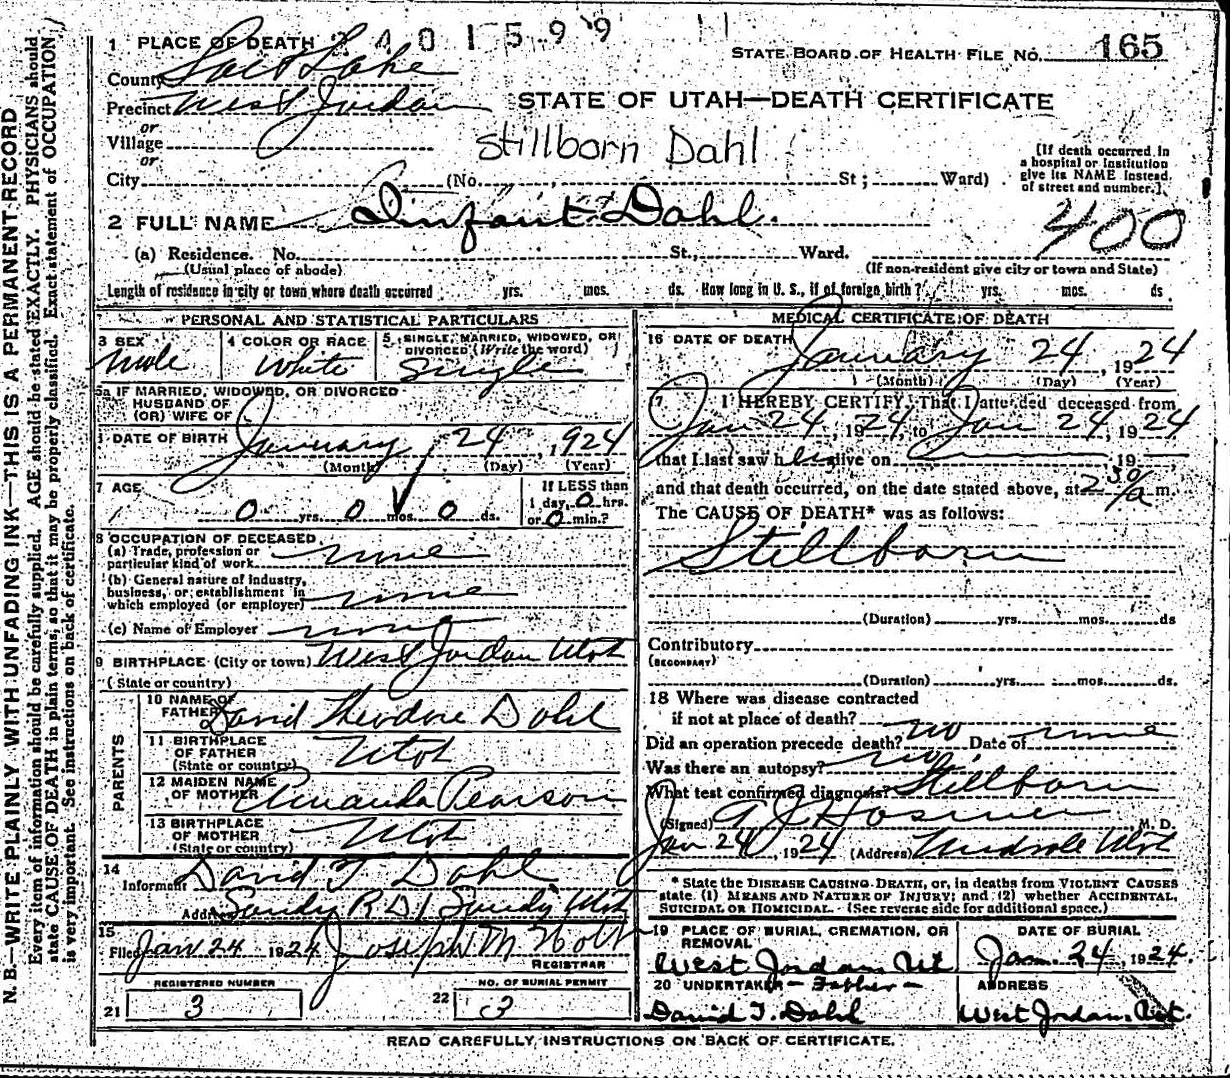 2401599
1 PLACE OF DEATH
STATE BOARD OF HEALTH FILE NO. 165
County Salt Lake
Precinct West Jordan
STATE OF UTAH—DEATH CERTIFICATE
or
Village
Stillborn Dahl
or
City (No. St; Ward)
(If death occurred in
a hospital or institution
give its NAME instead
of street and number.)
2 FULL NAME Infant Dahl.
400
(a) Residence. No. St., Ward.
(Usual place of abode) (If non-resident give city or town and State)
Length of residence in city or town where death occurred yrs. mos. ds. How long in U. S., if of foreign birth? yrs. mos. ds
PERSONAL AND STATISTICAL PARTICULARS
3 SEX Male
4 COLOR OR RACE White
5 SINGLE, MARRIED, WIDOWED, OR
DIVORCED (Write the word)
Single
5a IF MARRIED, WIDOWED, OR DIVORCED
HUSBAND OF
(OR) WIFE OF
DATE OF BIRTH January 24, 1924
(Month) (Day) (Year)
7 AGE
0 yrs. 0 mos. 0 ds.
If LESS than
1 day, 0 hrs.
or 0 min.?
8 OCCUPATION OF DECEASED
(a) Trade, profession or
particular kind of work none
(b) General nature of Industry,
business, or establishment in
which employed (or employer) none
(c) Name of Employer none
9 BIRTHPLACE (City or town) West Jordan Utah
(State or country)
PARENTS
10 NAME OF
FATHER David Theodore Dahl
11 BIRTHPLACE
OF FATHER Utah
(State or country)
12 MAIDEN NAME
OF MOTHER Amanda Pearson
13 BIRTHPLACE
OF MOTHER Utah
(State or country)
14
Informant David T Dahl
Address Sandy R D 1 Sandy Utah
15
Filed Jan 24 1924 Joseph M Holt
REGISTRAR
REGISTERED NUMBER
21 3
NO. OF BURIAL PERMIT
22 3
MEDICAL CERTIFICATE OF DEATH
16 DATE OF DEATH January 24, 1924
(Month) (Day) (Year)
17 I HEREBY CERTIFY, That I attended deceased from
Jan 24, 1924, to Jan 24, 1924
that I last saw h alive on , 19
and that death occurred, on the date stated above, at 2 30/a m.
The CAUSE OF DEATH* was as follows:
Stillborn
(Duration) yrs. mos. ds
Contributory
(SECONDARY)
(Duration) yrs. mos. ds.
18 Where was disease contracted
if not at place of death?
Did an operation precede death? no Date of none
Was there an autopsy? no
What test confirmed diagnosis? Stillborn
(Signed) A J Hosmer M. D.
Jan 24, 1924 (Address) Midvale Utah
* State the DISEASE CAUSING DEATH, or, in deaths from VIOLENT CAUSES
state (1) MEANS AND NATURE OF INJURY; and (2) whether ACCIDENTAL,
SUICIDAL OR HOMICIDAL. (See reverse side for additional space.)
19 PLACE OF BURIAL, CREMATION, OR
REMOVAL
West Jordan, Ut
DATE OF BURIAL
Jan. 24, 1924.
20 UNDERTAKER – Father –
David T. Dahl
ADDRESS
West Jordan, Ut.
READ CAREFULLY INSTRUCTIONS ON BACK OF CERTIFICATE.
N. B.—WRITE PLAINLY WITH UNFADING INK—THIS IS A PERMANENT RECORD
Every item of information should be carefully supplied. AGE should be stated EXACTLY. PHYSICIANS should
state CAUSE OF DEATH in plain terms, so that it may be properly classified. Exact statement of OCCUPATION
is very important. See instructions on back of certificate.